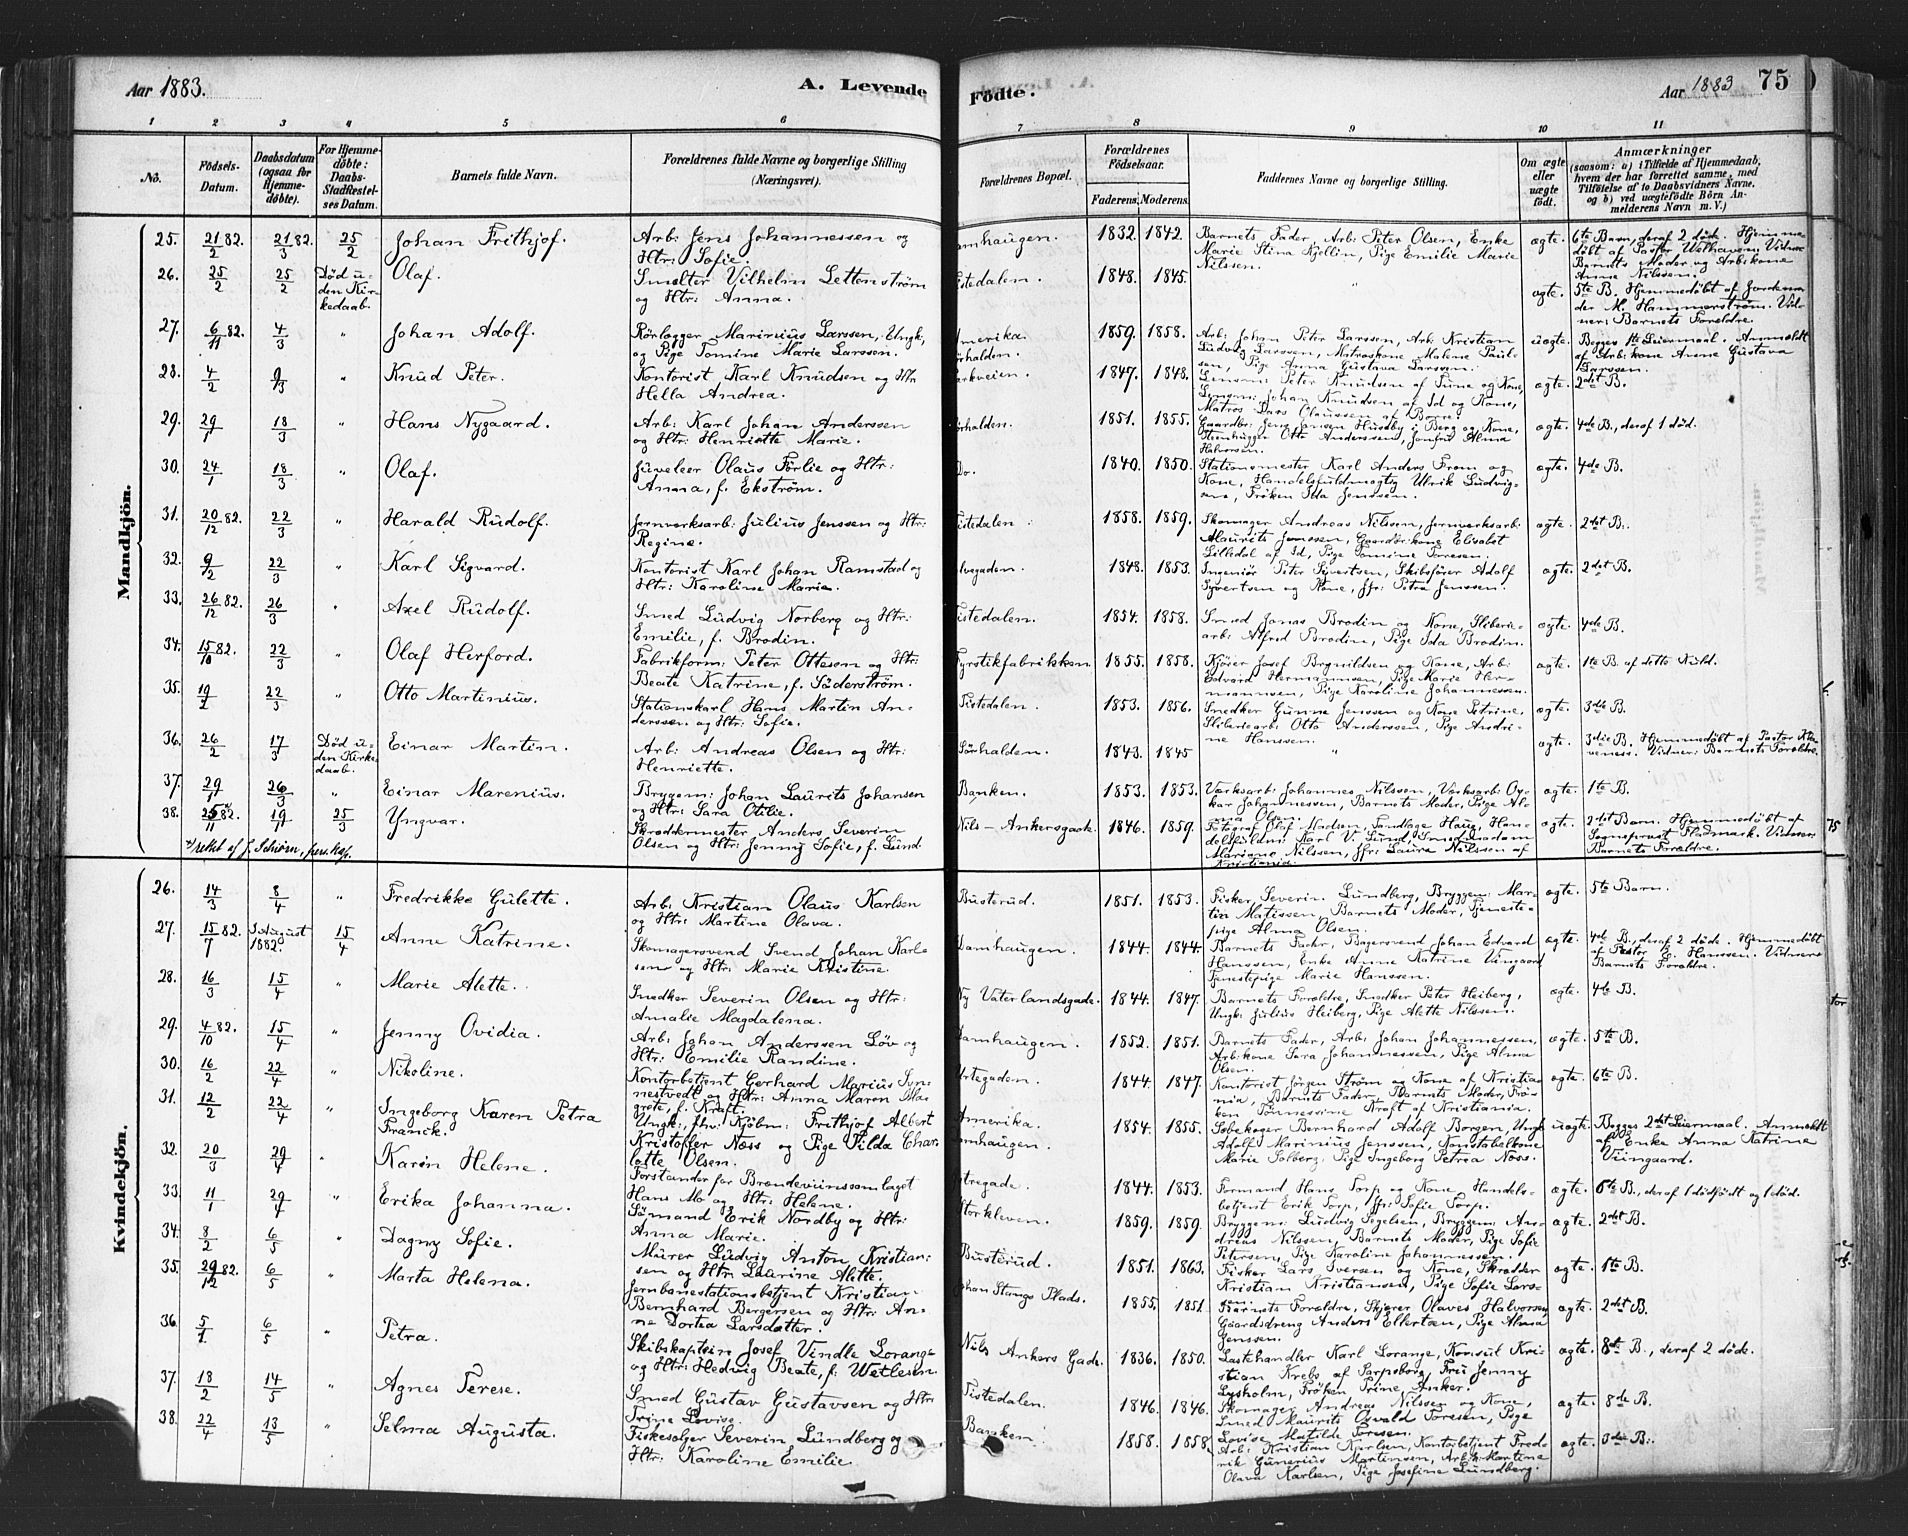 Aar 1883.
A. Levende
Födte.
Aar 1883
75
1 2 3 4 5 6 7 8 9 10 11
No.
Födsels-Datum.
Daabsdatum (ogsaa for Hjemme-døbte).
For Hjemme-døbte: Daabs-Stadfæstel-ses Datum.
Barnets fulde Navn.
Forældrenes fulde Navne og borgerlige Stilling (Næringsvei).
Forældrenes Bopæl.
Forældrenes Födselsaar.
Faderens. Moderens.
Faddernes Navne og borgerlige Stilling.
Om ægte eller uægte födt.
Anmærkninger
(saasom: a) i Tilfælde af Hjemmedaab, hvem der har forrettet samme, med Tilföielse af to Daabsvidners Navne, og b) ved uægtefödte Börn An-melderens Navn m. V.)
Mandkjön.
25. 21/2 82. 21/3 82. 25/2 Johan Frithjof. Arb: Jens Johannessen og Htr: Sofie. 1832. 1842. Barnets Fader, Arb: Peter Olsen, Enke Marie Stina Kjellin, Pige Emilie Marie Nilssen. ægte. 6te Barn, deraf 2 døde. Hjemme døbt af Pastor Welhaven. Vidner Barnets Moder og Arb:kone Anne Nilssen.
26. 25/2 25/2 Død u-den Kir-kedaab. Olaf. Smelter Vilhelm Lettenstrøm og Htr: Anna. istedalen. 1848. 1845. " ægte. 5te B. Hjemmedøbt af Jordemo der M. Hammerstrøm. Vid-ner: Barnets Forældre.
27. 6/11 82. 4/3 " Johan Adolf. Rörlægger Marinius Larssen, Ungk, og Pige Tomine Marie Larssen. Amerika. 1859. 1858. Arb: Johan Peter Larssen, Arb: Kristian Ludvig Larssen, Matroskone Malene Paul-sen, Pige Anna Gustava Larssen. uægte. Begges 1te Leiermaal. Anmeldt af Arb:kone Anne Gustava Larssen.
28. 4/2 9/3 " Knud Peter. Kontorist Karl Knudsen og Htr Hella Andrea. arkveien. 1847. 1848. Lensm: Peter Knudsen af Tune og Kone, Lensm: Johan Knudsen af Id og Kone, Matros Lars Claussen af Borre. ægte. 2det B.
29. 29/1 18/3 " Hans Nygaard. Arb: Karl Johan Anderssen og Htr: Henriette Marie. 1851. 1855. Gaardbr: Jens Jansen Huseby i Berg og Kone, Stenhugger Otto Anderssen, Jomfru Alma Halvorsen. ægte. 4de B., deraf 1 død.
30. 24/1 18/3 " Olaf. Juveleer Olaus Førlie og Htr: Anna, f. Ekström. Do. 1840. 1850. Stationsmester Karl Anders From og Kone, Handelsfuldmægtig Ulrik Ludvig-sen, Frøken Ida Jenssen. ægte. 4de B.
31. 20/12 82. 22/3 " Harald Rudolf. Jernverksarb: Julius Jenssen og Htr: Regine. istedalen. 1858. 1859. Skomager Andreas Nilssen, Jernverksarb: Maurits Jenssen, Gaardbrkone Elisabet Lilledal af Id, Pige Tomine Toresen. ægte. 2det B.
32. 9/2 22/3 " Karl Sigvard. Kontorist Karl Johan Ramstad og Htr: Karoline Marie. 1848. 1853. Ingeniør Peter Syvertsen, Skibsfører Adolf Syvertsen og Kone, Jfr: Petra Jenssen. ægte. 2det B.
33. 26/12 82. 26/3 " Axel Rudolf. Smed Ludvig Norberg og Htr: Emilie, f. Brodin. Tistedalen. 1854. 1858. Smed Jonas Brodin og Kone, Sliberie-arb: Alfred Brodin, Pige Ida Brodin. ægte. 4de B.
34. 15/10 82. 22/3 " Olaf Herford. Fabrikform: Peter Ottesen og Htr: Beate Katrine, f. Söderström. Fyrstikfabrikken 1855. 1858. Kjører Josef Brynildsen og Kone, Arb: Edvard Hermannsen, Pige Marie Her-mannsen, Pige Karoline Johannessen. ægte. 1te B. af dette Kuld.
35. 19/2 22/3 " Otto Martinius. Stationskarl Hans Martin An-derssen og Htr: Sofie. Tistedalen. 1853. 1856. Snedker Gunne Jenssen og Kone Petrine, Sliberiearb: Otto Anderssen, Pige Andri-ne Hanssen. ægte. 3die B.
36. 26/2 17/3 Død u-den Kirke daab. Einar Martin. Arb: Andreas Olsen og Htr: Henriette. Sørhalden. 1843. 1845 " ægte. 3die B. Hjemmedøbt af Pastor Kle veness. Vidner: Barnets Forældre.
37. 29/1 26/3 " Einar Marenius. Bryggem: Johan Laurits Johansen og Htr: Sara Otilie. Banken. 1853. 1853. Værksarb: Johannes Nilssen, Værksarb: Os-kar Johannessen, Barnets Moder, Pige Al-ma Olsen. ægte. 1te B.
38. 25/11 82. 19/1 25/3 Yngvar. Skræddermester Anders Severin Olsen og Htr: Jenny Sofie, f. Lund. Nils-Ankersgade. 1846. 1859. Fotograf Olaf Madsen, Tandlæge Haug, Han-delsfuldm: Karl V. Lund, Madam Mariane Nilssen, Jfr: Laura Nilssen af Kristiania. ægte. 2det Barn. Hjemmedøbt af Sogneprest Flodmark. Vidner: Barnets Forældre.
rettet af J. Schiørn, pers.kap.
Kvindekjön.
26. 14/3 8/4 " Fredrikke Gulette. Arb: Kristian Olaus Karlsen og Htr: Martine Olava. Busterud. 1851. 1853. Fisker Severin Lundberg, Bryggem: Mar-tin Matissen, Barnets Moder, Tjeneste-pige Alma Olsen. ægte. 5te Barn.
27. 15/7 82. August 1882. 15/4 Anne Katrine. Skomagersvend Svend Johan Karl-sen og Htr: Marie Kristine. Damhaugen. 1844. 1844. Barnets Fader, Bagersvend Johan Edvard Hanssen, Enke Anne Katrine Viingaard Tjenestepige Marie Hanssen. ægte. 4de B., deraf 2 døde. Hjemmedøbt af Pastor E. Hanssen. Vidnere Barnets Forældre.
28. 16/3 15/4 " Marie Alette. Snedker Severin Olsen og Htr: Amalie Magdalena. Ny Vaterlandsgade. 1844. 1847. Barnets Forældre, Snedker Peter Heiberg, Ungk: Julius Heiberg, Pige Alette Nilssen. ægte. 4de B.
29. 4/10 82. 15/4 " Jenny Ovidia. Arb: Johan Anderssen Löv og Htr: Emilie Randine. Damhaugen. 1852. 1851. Barnets Fader, Arb: Johan Johannessen, Arb:kone Sara Johannessen, Pige Alma Olsen. ægte. 5te B.
30. 16/2 22/4 " Nikoline. Kontorbetjent Gerhard Marius Ton-nestvedt og Htr: Anna Maren Mar-grete, f. Kraft. 1844. 1847. Kontorist Jörgen Strøm og Kone af Kristia-nia, Barnets Fader, Barnets Moder, Frø-ken Tønnessine Kraft af Kristiania. ægte. 6te B.
31. 12/2 22/4 " Ingeborg Karen Petra Franck. Ungk:, fhv: Kjöbm: Frithjof Albert Kristoffer Næss og Pige Tilda Char-lotte Olsen. Amerika. 1854. 1855. Søbekoger Bernhard Adolf Borgen, Ungk Adolf Marinius Jenssen, Konstabelkone Marie Solberg, Pige Ingeborg Petrea Næss. uægte. Begges 2det Leiermaal. Anmeldt af Enke Anna Katrine Viingaard.
32. 20/3 29/4 " Karen Helene. Forstander for Brændeviinssamlaget Hans Mo og Htr: Helene. 1844. 1853. Formand Hans Torp og Kone, Handels-betjent Erik Torp, Jfr: Sofie Torp. ægte. 6te B., deraf 1 dødfødt og 1 død.
33. 11/1 29/4 " Erika Johanna. Sömand Erik Nordby og Htr: Anna Marie. Storkleven. 1859. 1859. Bryggem: Ludvig Segelsen, Bryggem: An-dreas Nilssen, Barnets Moder, Pige Sofie Petersen, Pige Karoline Johannessen. ægte. 2det B.
34. 8/2 6/5 " Dagny Sofie. Murer Ludvig Anton Kristian-sen og Htr: Laurine Alette. Busterud. 1851. 1863. Fisker Lars Iversen og Kone, Skrædder Kristian Kristiansen, Pige Sofie Lars-sen. ægte. 1te B.
35. 29/12 82. 6/5 " Marta Helena. Jernbanestationsbetjent Kristian Bernhard Bergersen og Htr: An-ne Dortea Larsdatter. Johan Stangs Plads. 1855. 1851 Barnets Forældre, Skjærer Olaves Halvorsen, Gaardsdreng Anders Ellertsen, Pige Alma Jenssen. ægte. 2det B.
36. 5/1 6/5 " Petra. Skibskaptein Josef Vindle Lorange og Htr: Hedvig Beate, f: Wetlesen. Nils Ankers Gade. 1836. 1850. Lastehandler Karl Lorange, Konsul Kri-stian Krebs af Sarpsborg, Fru Jenny Lysholm, Frøken Trine Anker. ægte. 8de B., deraf 2 døde.
37. 18/2 14/5 " Agnes Terese. Smed Gustav Gustavsen og Htr Trine Lovise. Tistedalen. 1846. 1846. Skomager Andreas Nilssen og Kone, Smed Maurits Osvald Toresen, Pige Lovise Matilde Toresen. ægte. 8de B.
38. 22/4 13/5 " Selma Augusta. Fiskesælger Severin Lundberg og Htr: Karoline Emilie. Banken. 1858. 1858. Arb: Kristian Karlsen, Kontorbetjent Fred-rik Gunerius Martinsen, Arb:k: Martine Olava Karlsen, Pige Josefine Lundberg. ægte. 3die B.